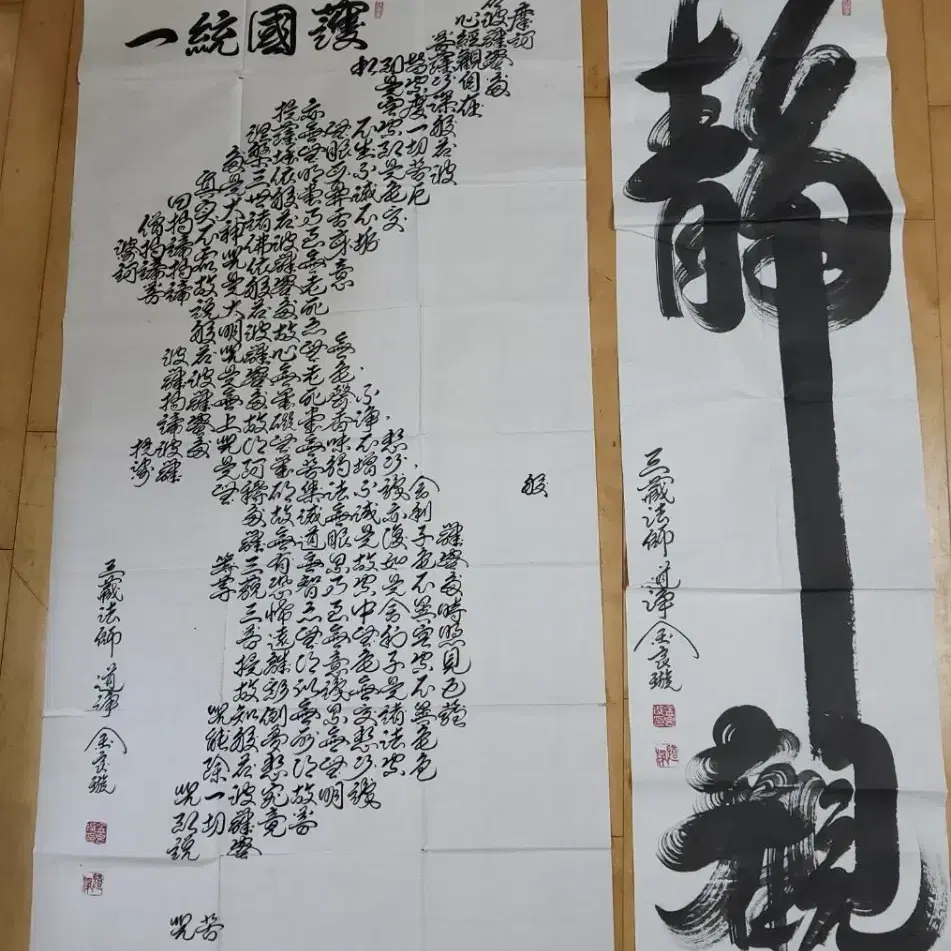 護國統一
摩訶
般
若波羅蜜多
心經觀自在
菩薩行深般若波
羅蜜多時照見五蘊
皆空度一切苦厄
舍利子色不異空空不異色
即是空空即是色受
想行識亦復如是舍利子是諸法空
相
不生不滅不垢
不淨不增不減是故空中無色無受想行識
無眼耳鼻舌身意
無色聲香味觸法無眼界乃至無意識界無無明
亦無無明盡乃至無老死亦無老死盡無苦集滅道無智亦無得以無所得故菩
提薩埵依般若波羅蜜多故心無罣礙無罣礙故無有恐怖遠離顛倒夢想究竟
涅槃三世諸佛依般若波羅蜜多故得阿耨多羅三藐三菩提故知般若波羅蜜
多是大神呪是大明呪是無上呪是無
等等
呪能除一切苦
真實不虛故說般若波羅蜜多
呪即說呪
曰揭諦揭諦
波羅揭諦波羅
僧揭諦菩
提娑
婆訶
三藏法師 道淨 金良璇
靜觀
三藏法師 道淨 金良璇